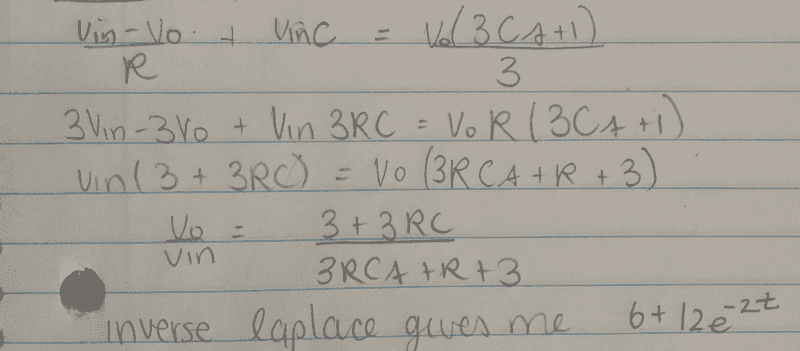 Vin-Vo/R + VinC = Vo(3Cs+1)/3
3Vin-3Vo + Vin 3RC = VoR(3Cs+1)
Vin(3+3RC) = Vo(3RCs+R+3)
Vo/Vin = 3+3RC/3RCs+R+3
inverse laplace gives me 6+12e^-2t